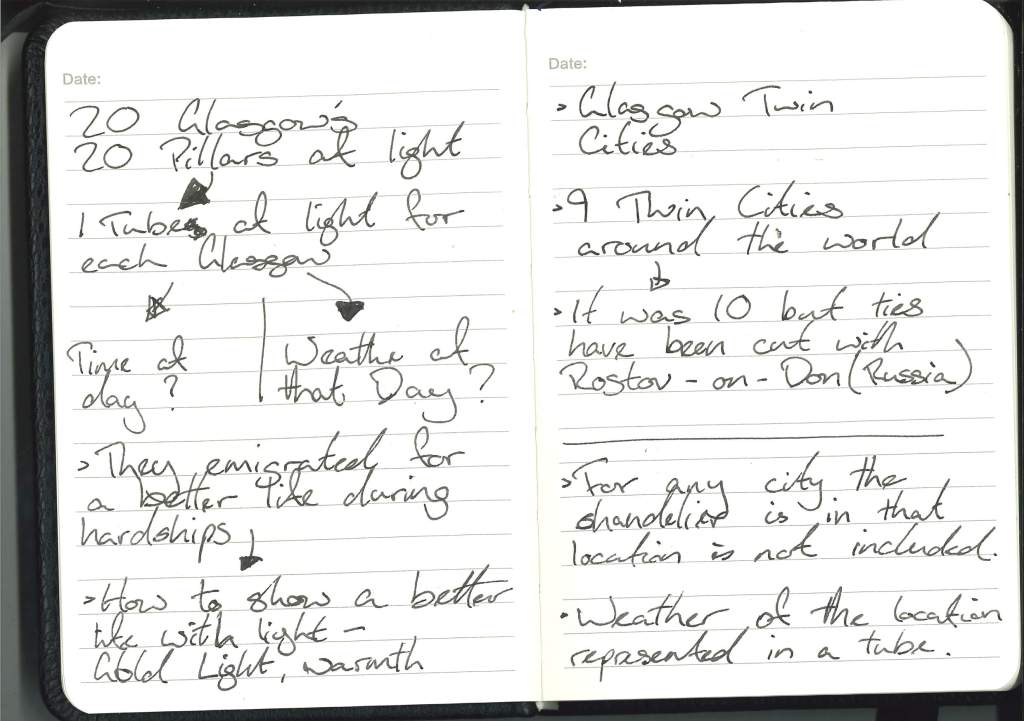 Date:
20 Glasgow's
20 Pillars of light
1 Tube of light for
each Glasgow
Time of
day ?
Weather of
that Day ?
> They emigrated for
a better life during
hardships
> How to show a better
life with light -
Gold Light, warmth
Date:
> Glasgow Twin
Cities
> 9 Twin Cities
around the world
> It was 10 but ties
have been cut with
Rostov - on - Don (Russia)
> For any city the
shandelier is in that
location is not included.
• Weather of the location
represented in a tube.